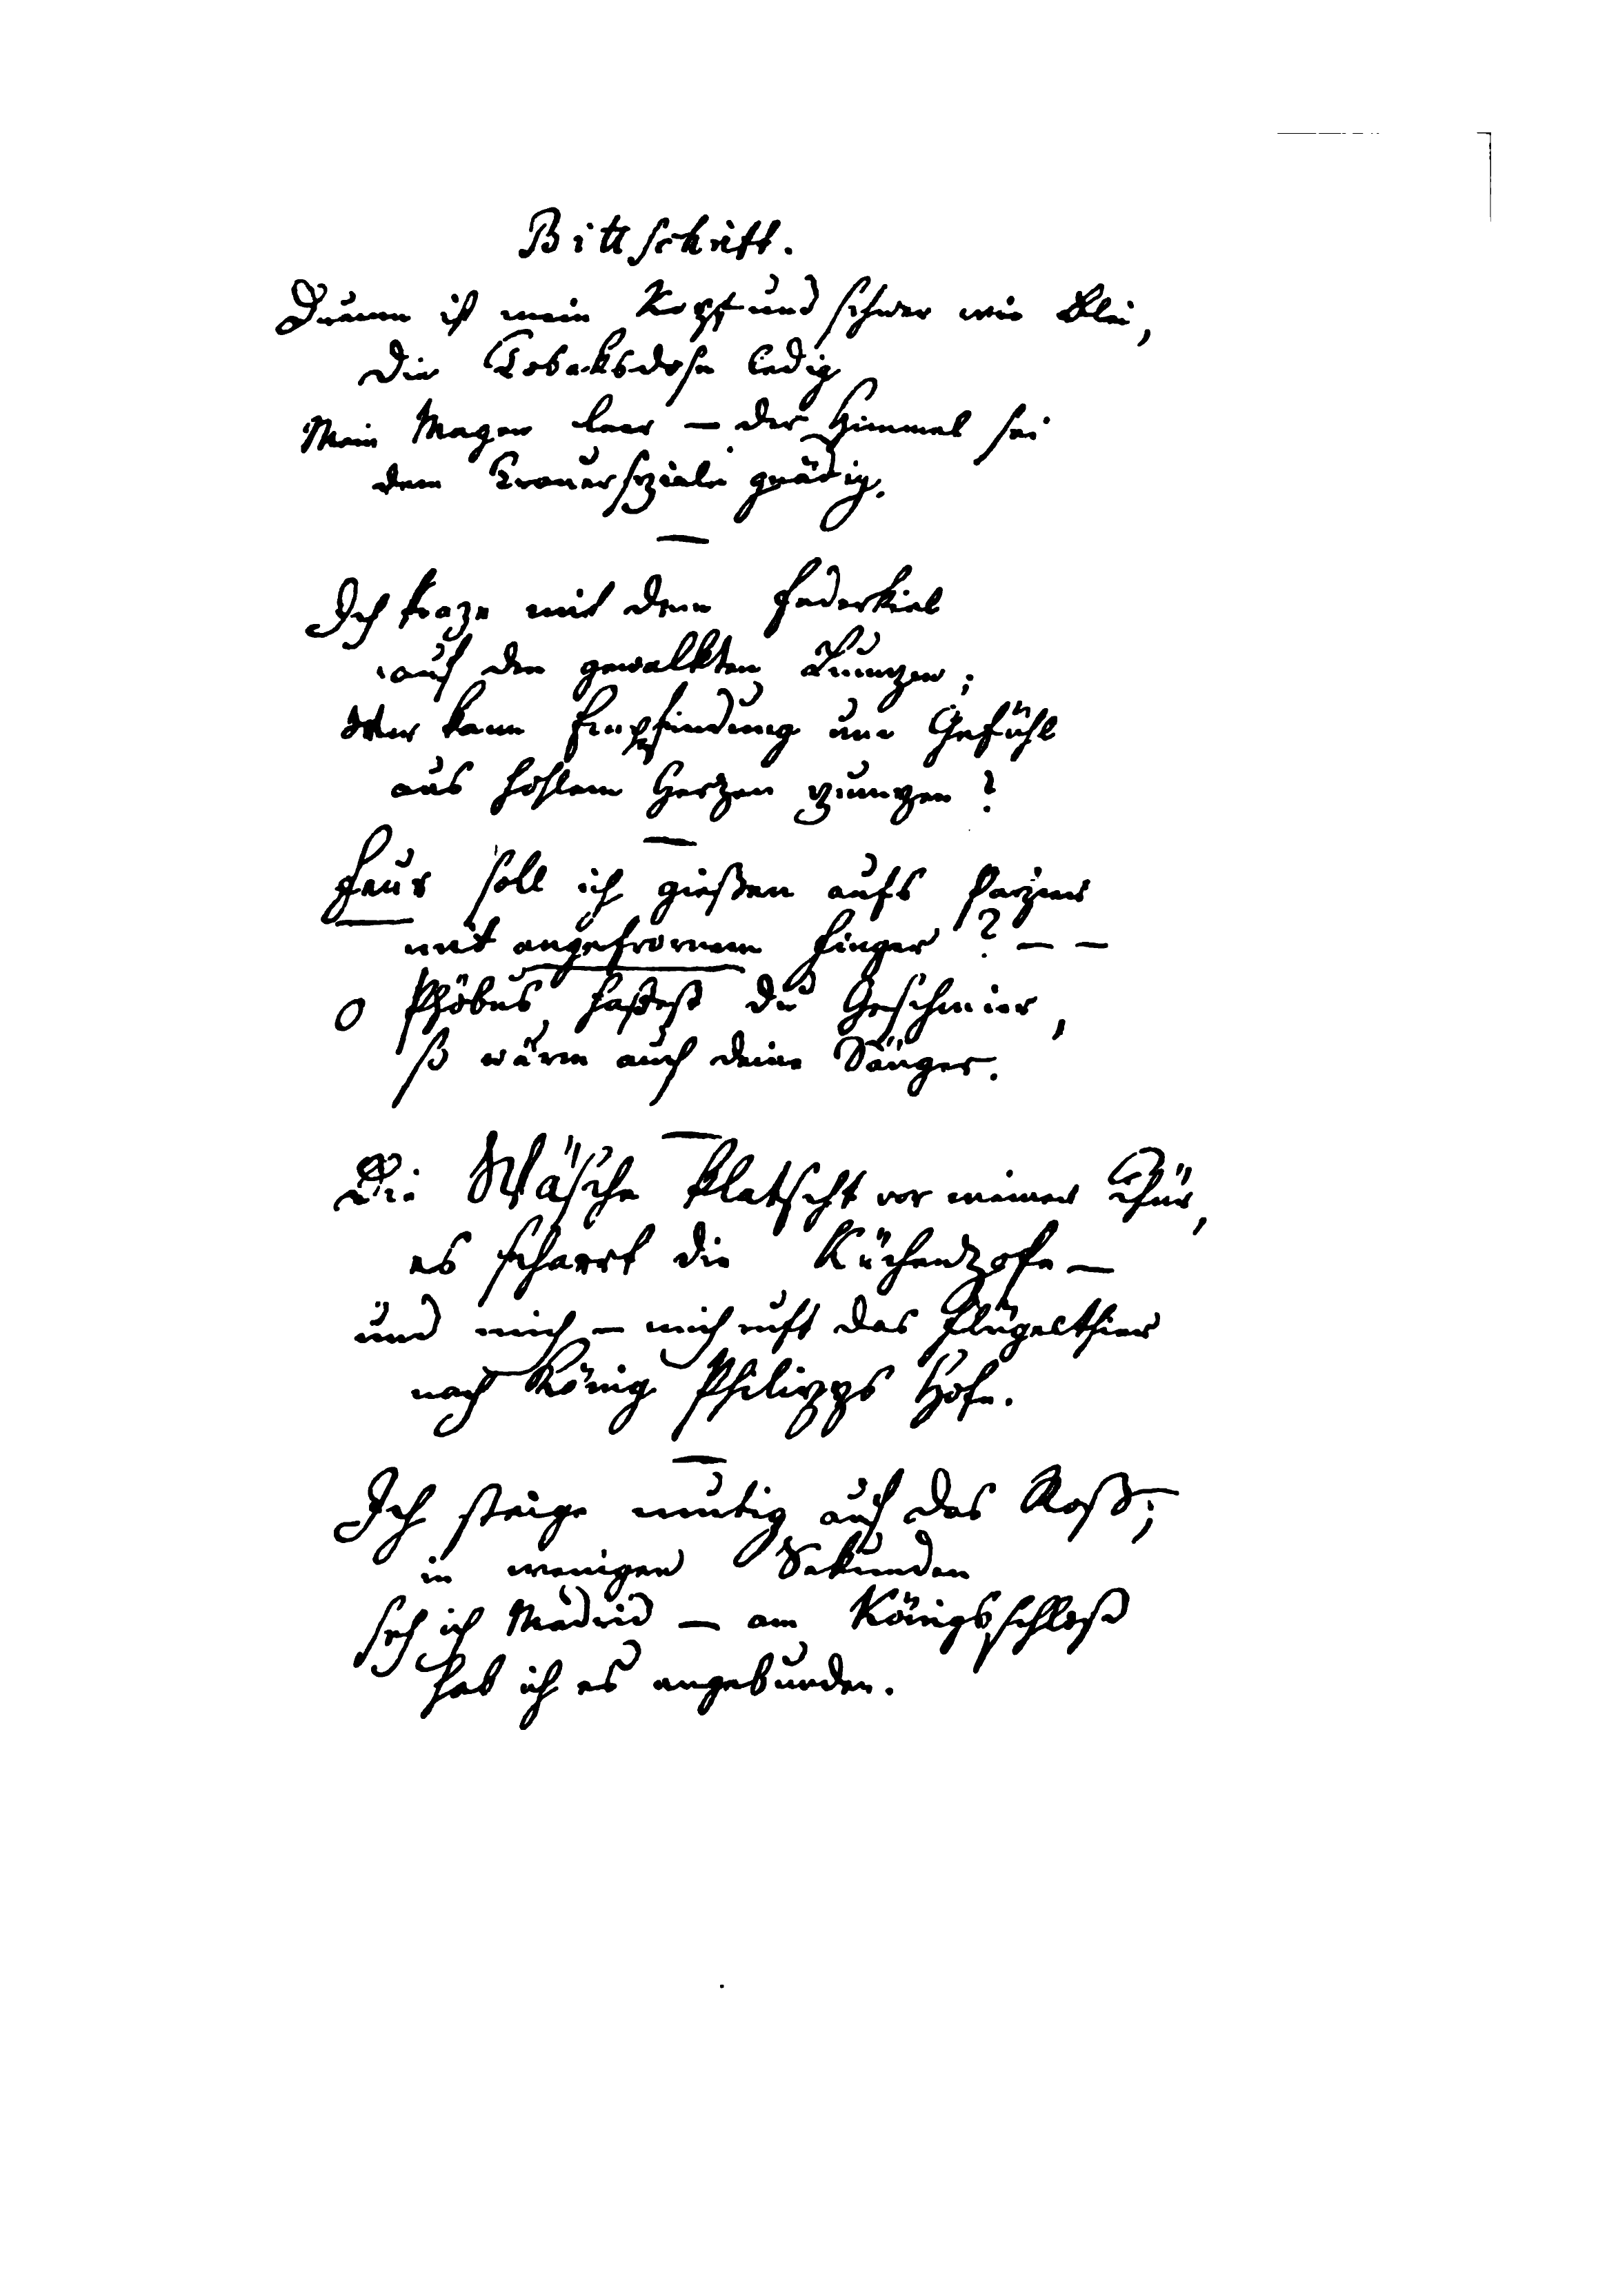 Bittschrift.
Dumm ist mein Kopf und schwer wie Blei,
Die Tobaksdose ledig
Mein Magen leer — der Himmel sei
dem Trauerspiele gnädig.
Ich kraze mit dem Federkiel
auf den gewalkten Lumpen;
Wer kann Empfindung und Gefühl
aus hohlem Herzen pumpen?
Feur soll ich gießen aufs Papier
mit angefrornem Finger? — —
O Phöbus, haßest du Geschmier,
so wärm auch deine Sänger.
Die Wäsche klatscht vor meiner Thür,
es scharrt die Küchenzofe —
und mich — mich ruft das Flügelthier
nach König Philipps Hofe.
Ich steige mutig auf das Roß;
in wenigen Sekunden
seh ich Madrid — am Königsschloß
hab ich es angebunden.